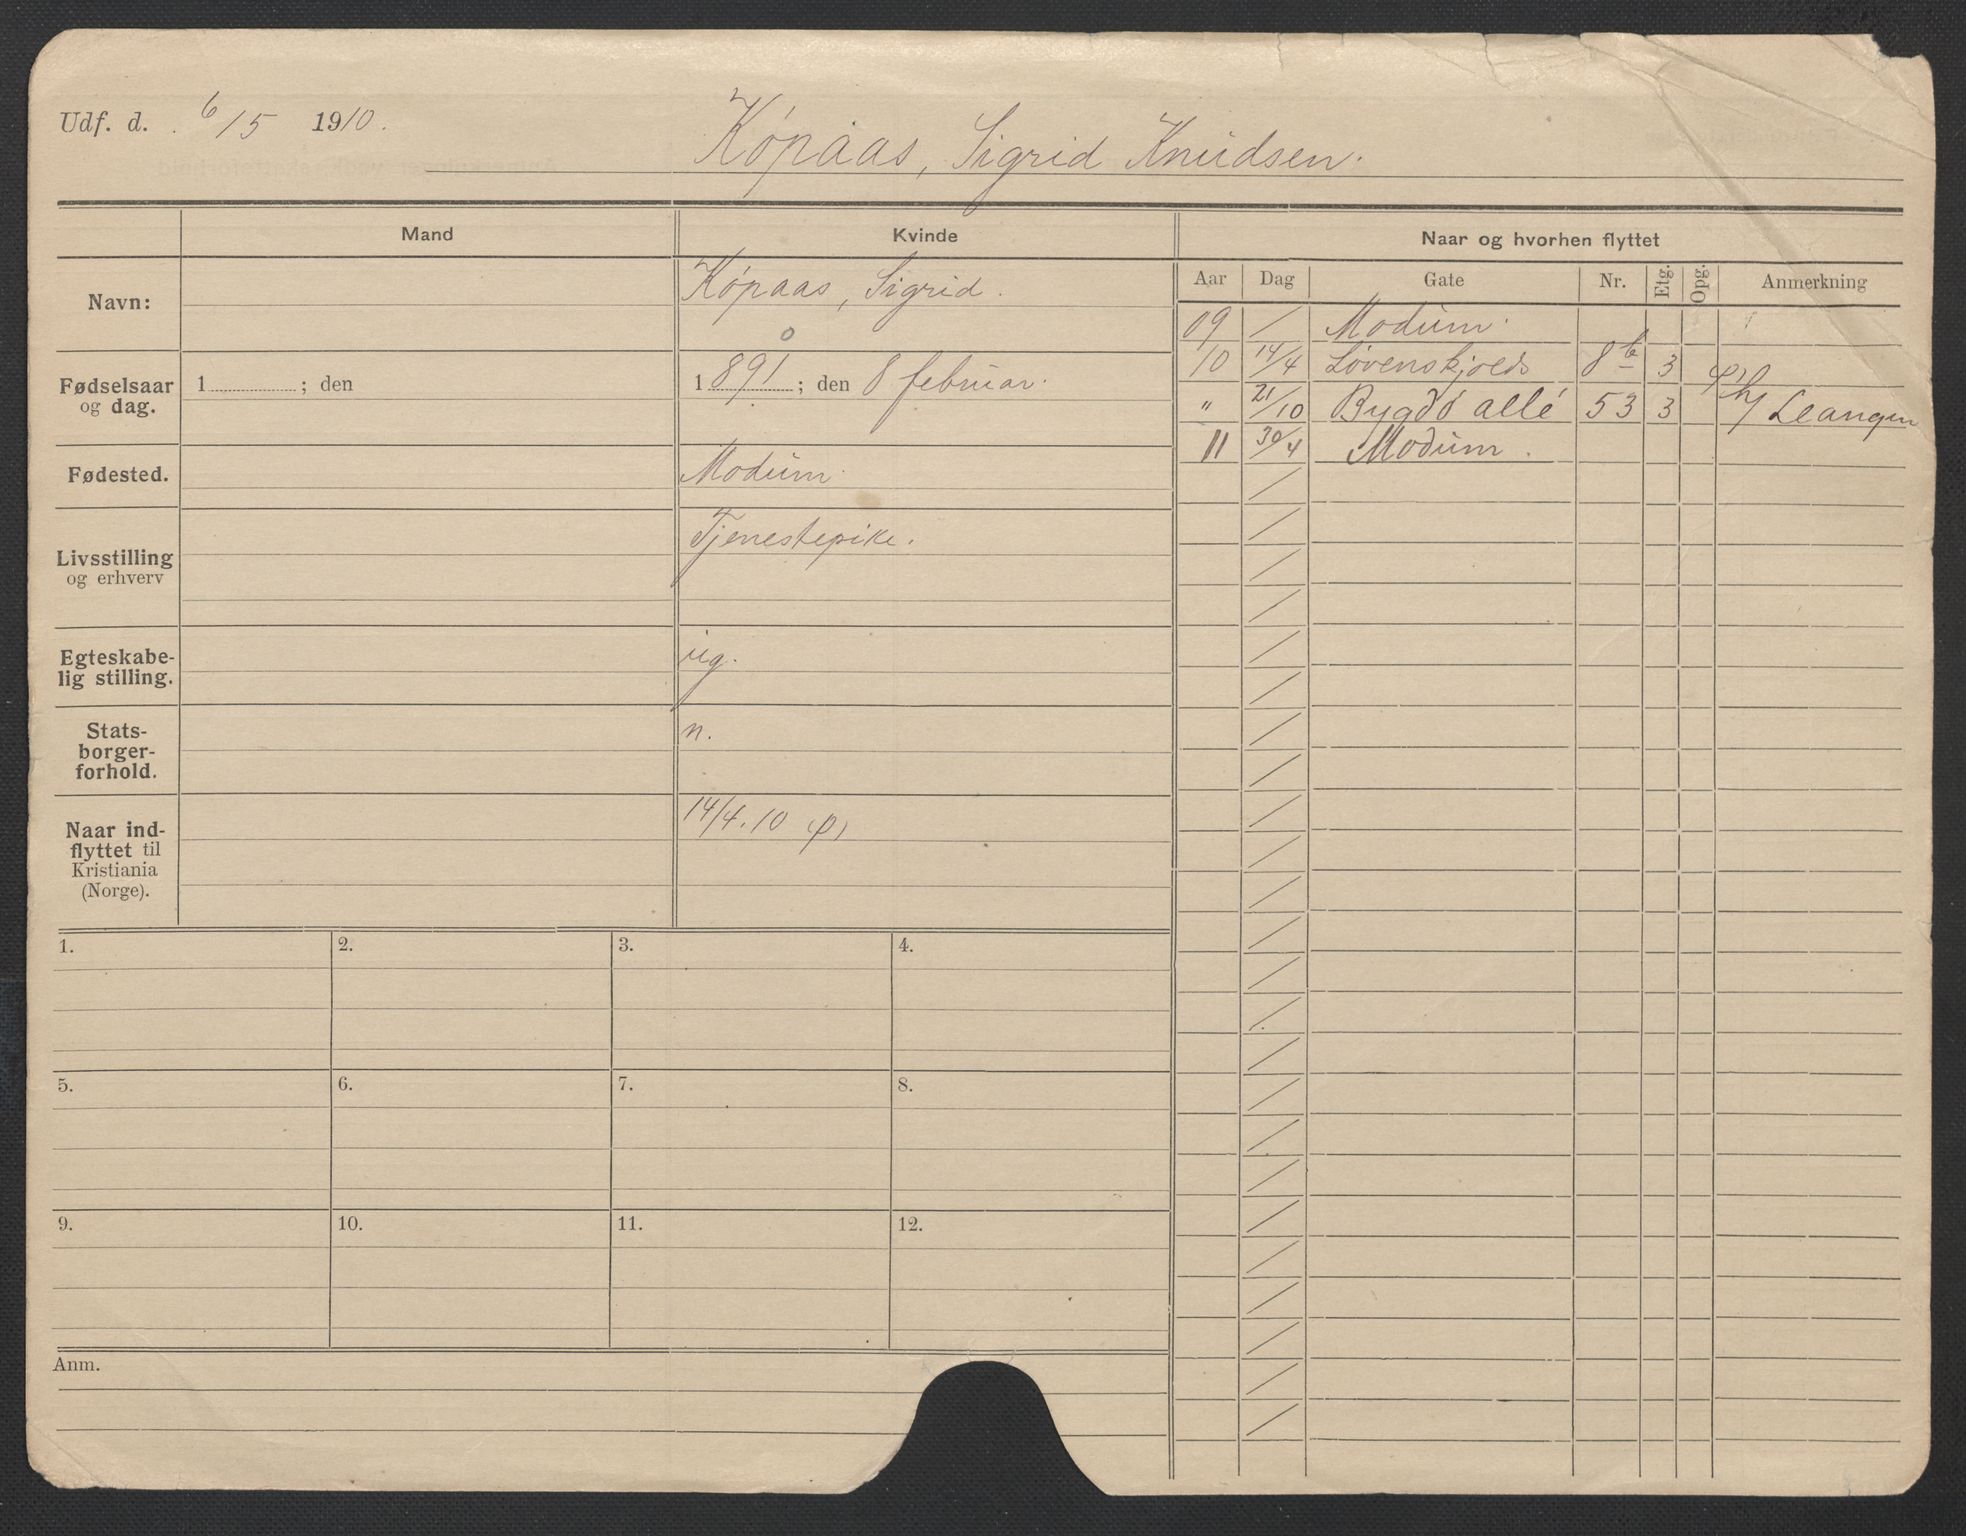 Udf. d. 6/5 1910.
Köpaas, Sigrid Knudsen.
Mand
Kvinde
Naar og hvorhen flyttet
Aar Dag Gate Nr. Etg. Opg. Anmerkning
Navn:
Köpaas, Sigrid.
Fødselsaar
og dag.
1 ; den
1 891 ; den 8 februar.
Fødested.
Modum.
Livsstilling
og erhverv
Tjenestepike.
Egteskabe-
lig stilling.
ug.
Stats-
borger-
forhold.
n.
Naar ind-
flyttet til
Kristiania
(Norge).
14/4. 10
09 / Modum.
10 14/4 Løvenskjolds 8b 3
" 21/10 Bygdö allé 53 3 Leangen
11 30/4 Modum.
1. 2. 3. 4.
5. 6. 7. 8.
9. 10. 11. 12.
Anm.